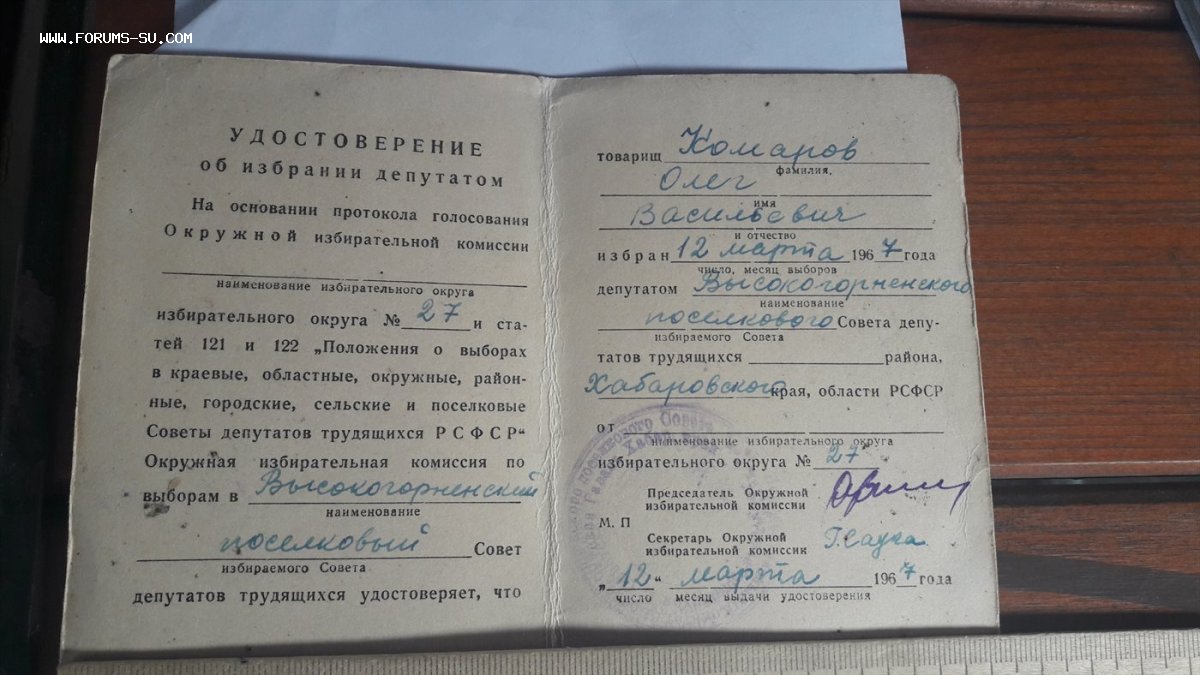 WWW.FORUMS-SU.COM
УДОСТОВЕРЕНИЕ
об избрании депутатом
На основании протокола голосования
Окружной избирательной комиссии
наименование избирательного округа
избирательного округа № 27 и ста-
тей 121 и 122 „Положения о выборах
в краевые, областные, окружные, район-
ные, городские, сельские и поселковые
Советы депутатов трудящихся РСФСР“
Окружная избирательная комиссия по
выборам в Высокогорненский
наименование
поселковый Совет
избираемого Совета
депутатов трудящихся удостоверяет, что
товарищ Комаров
фамилия,
Олег
имя
Васильевич
и отчество
избран 12 марта 1967 года
число, месяц выборов
депутатом Высокогорненского
наименование
поселкового Совета депу-
избираемого Совета
татов трудящихся района,
Хабаровского края, области РСФСР
от
наименование избирательного округа
избирательного округа № 27
Председатель Окружной
избирательной комиссии
М. П
Секретарь Окружной
избирательной комиссии
„12“ марта 1967 года
число месяц выдачи удостоверения
поселкового Совета